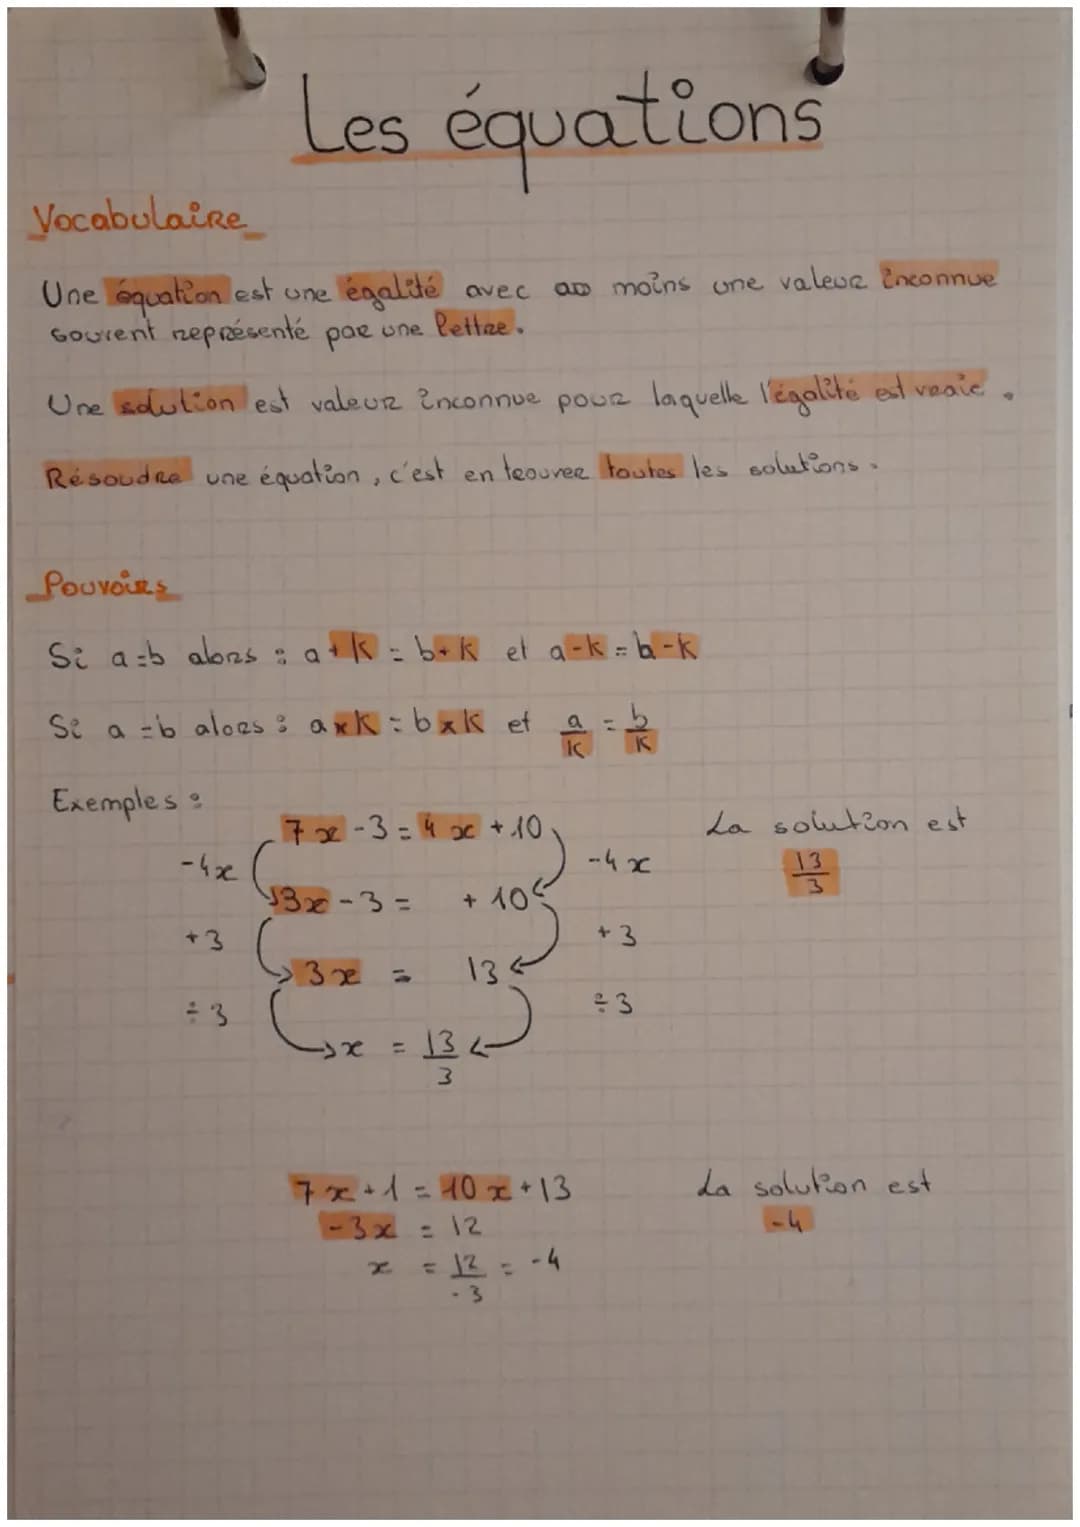 Les équations
Vocabulaire
Une équation est une égalité avec au moins une valeur inconnue
souvent représenté par une lettre.
Une solution est valeur inconnue pour laquelle l'égalité est vraie.
Résoudre une équation, c'est en trouver toutes les solutions.
Pouvoirs
Si a=b alors : a+K = b+K et a-K = b-K
Si a=b alors : a×K = b×K et a/K = b/K
Exemples :
7x - 3 = 4x + 10
La solution est
-4x
-4x
13/3
3x - 3 = + 10
+3
+3
3x = 13
÷3
÷3
x = 13/3
7x + 1 = 10x + 13
La solution est
-3x = 12
-4
x = 12/-3 = -4